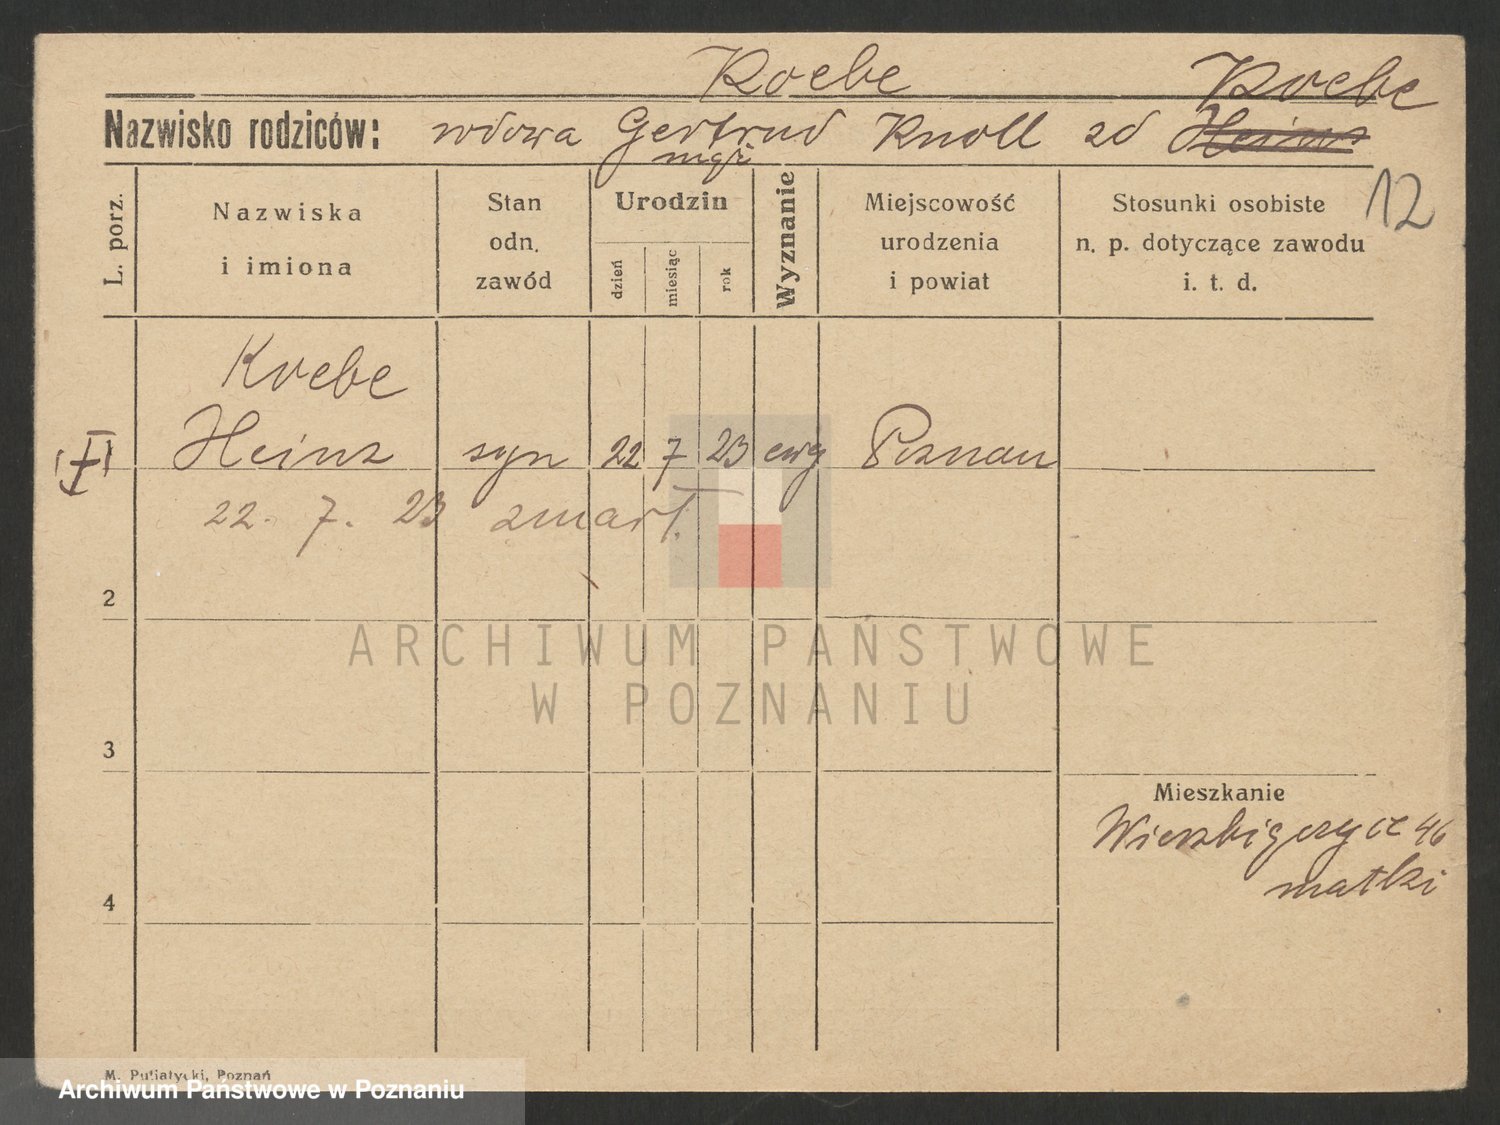 Koebe Koebe
Nazwisko rodziców: wdowa Gertrud Knoll zd
12
L. porz.
Nazwiska
i imiona
Stan
odn.
zawód
Urodzin
dzień
miesiąc
rok
Wyznanie
Miejscowość
urodzenia
i powiat
Stosunki osobiste
n. p. dotyczące zawodu
i. t. d.
Koebe
Heinz syn 22 7 23 ewg Poznań
22. 7. 23 zmarł.
2
3
4
Mieszkanie
46
matki
ARCHIWUM PAŃSTWOWE
W POZNANIU
M. Putiatycki, Poznań
Archiwum Państwowe w Poznaniu